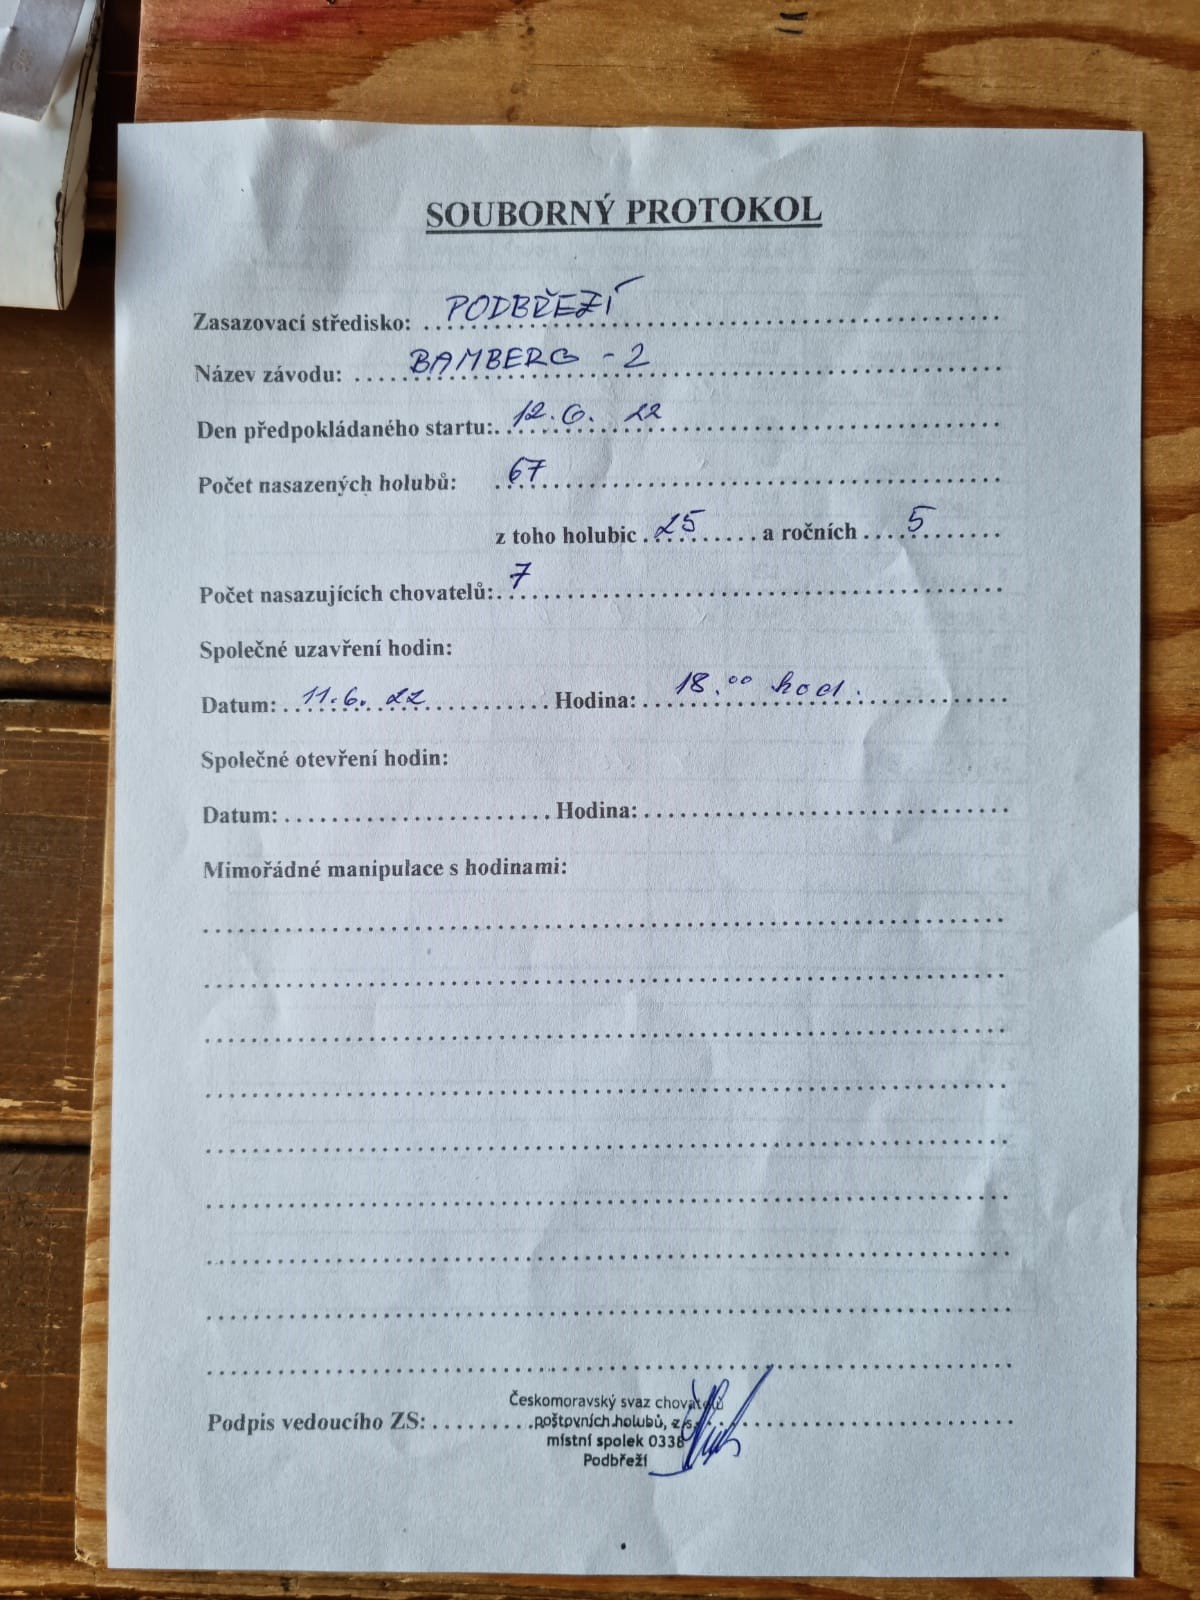 SOUBORNÝ PROTOKOL
Zasazovací středisko: PODBŘEZÍ
Název závodu: BAMBERG - 2
Den předpokládaného startu: 12. 6. 22
Počet nasazených holubů: 67
z toho holubic 25 a ročních 5
Počet nasazujících chovatelů: 7
Společné uzavření hodin:
Datum: 11. 6. 22 Hodina: 18.00 hod.
Společné otevření hodin:
Datum: Hodina:
Mimořádné manipulace s hodinami:
Českomoravský svaz chovatelů
Podpis vedoucího ZS: poštovních holubů, z.s.
místní spolek 0338
Podbřeží